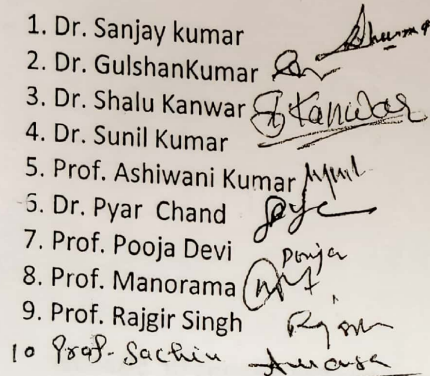 1. Dr. Sanjay kumar
2. Dr. GulshanKumar
3. Dr. Shalu Kanwar S Kanwar
4. Dr. Sunil Kumar
5. Prof. Ashiwani Kumar
6. Dr. Pyar Chand
7. Prof. Pooja Devi Pooja
8. Prof. Manorama
9. Prof. Rajgir Singh
10 Prof. Sachin